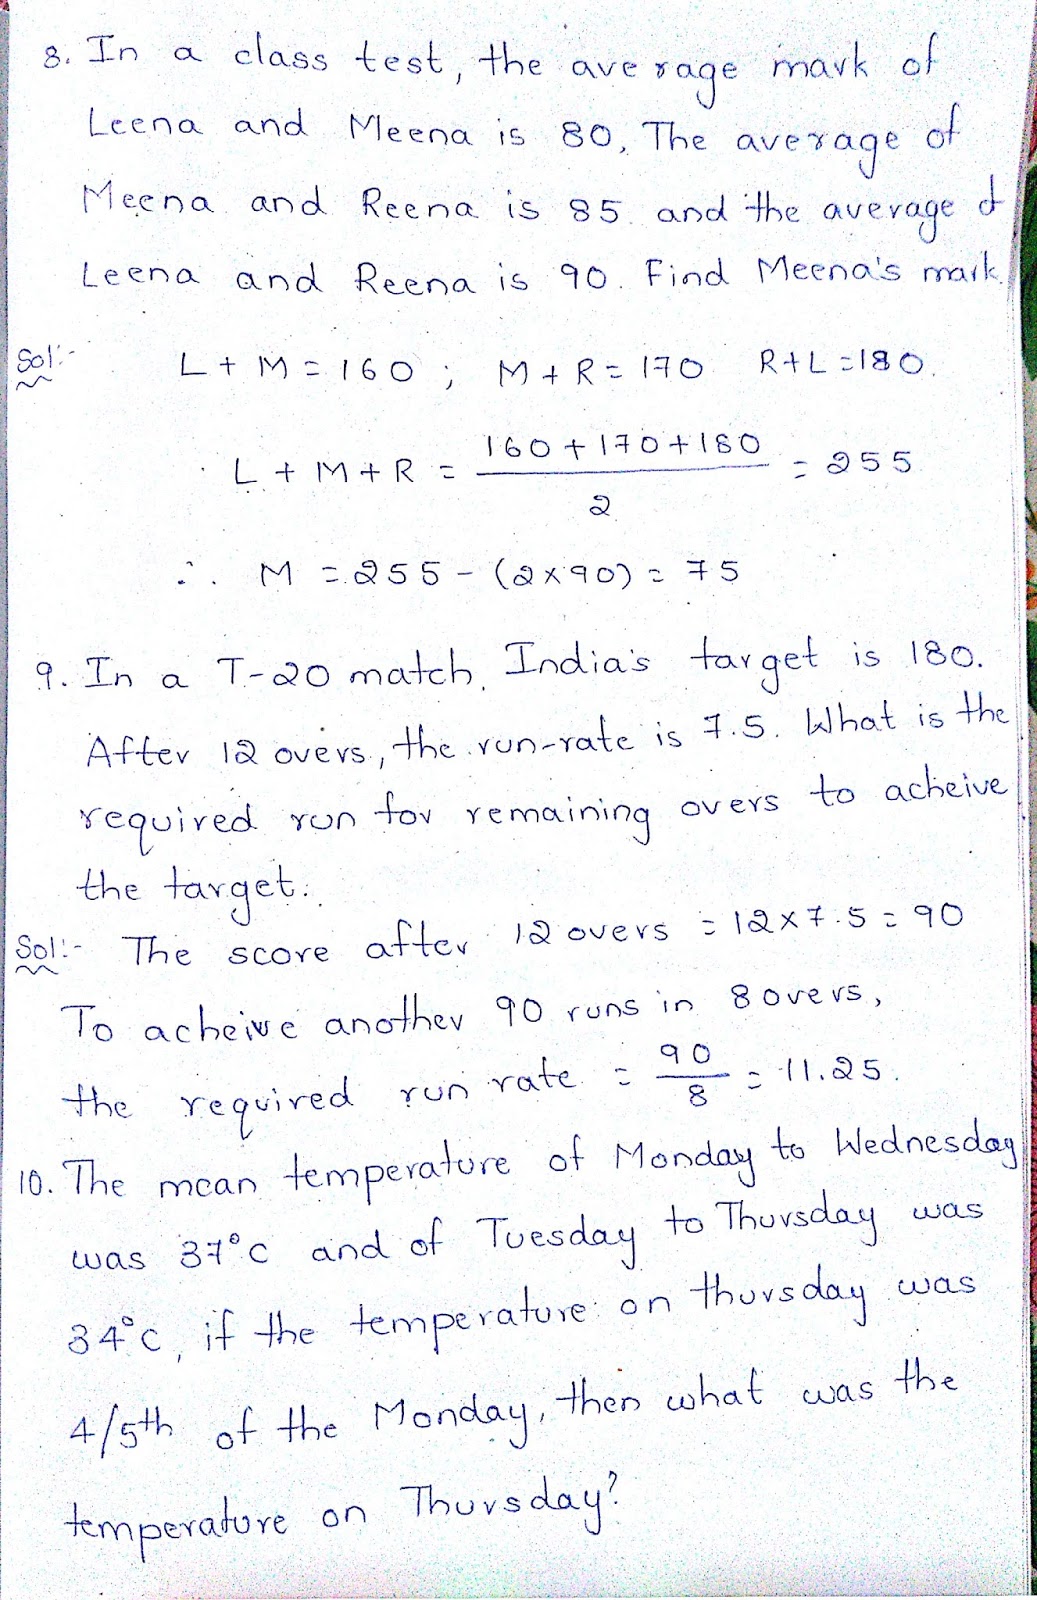 8. In a class test, the average mark of
Leena and Meena is 80, The average of
Meena and Reena is 85 and the average of
Leena and Reena is 90. Find Meena's mark.
Sol:- L + M = 160 ; M + R = 170 R+L = 180.
L + M + R = 160 + 170 + 180 / 2 = 255
∴ M = 255 - (2 x 90) = 75
9. In a T-20 match, India's target is 180.
After 12 overs, the run-rate is 7.5. What is the
required run for remaining overs to acheive
the target.
Sol:- The score after 12 overs = 12 x 7.5 = 90
To acheive another 90 runs in 8 overs,
the required run rate = 90/8 = 11.25.
10. The mean temperature of Monday to Wednesday
was 37°C and of Tuesday to Thursday was
34°C, if the temperature on thursday was
4/5th of the Monday, then what was the
temperature on Thursday?